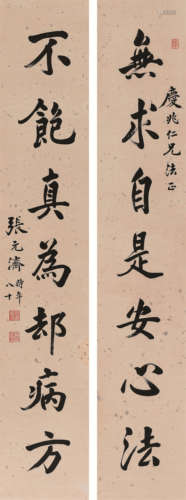 慶兆仁兄法正
無求自是安心法
不飽真為却病方
張元濟
時年八十